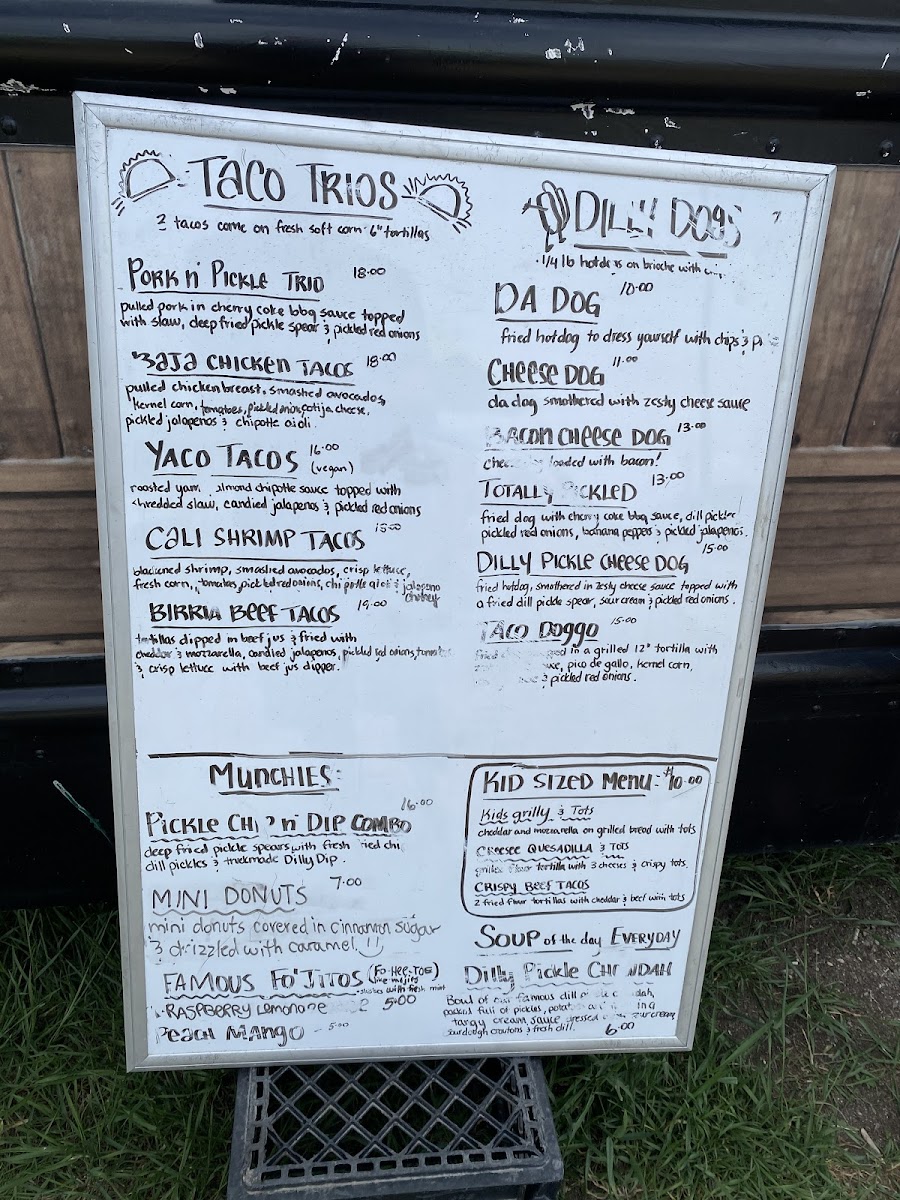 TACO TRIOS
3 tacos come on fresh soft corn 6" tortillas
PORK n' PICKLE TRIO 18.00
pulled pork in cherry coke bbq sauce topped
with slaw, deep fried pickle spear & pickled red onions
BAJA CHICKEN TACOS 18.00
pulled chicken breast, smashed avocados,
kernel corn, tomatoes, pickled onion, cotija cheese,
pickled jalapenos & chipotle aioli.
YACO TACOS 16.00
(vegan)
roasted yam, almond chipotle sauce topped with
shredded slaw, candied jalapenos & pickled red onions
CALI SHRIMP TACOS 15.00
blackened shrimp, smashed avocados, crisp lettuce,
fresh corn, tomatoes, pickled red onions, chipotle aioli & jalapeno
chutney
BIRRIA BEEF TACOS 19.00
tortillas dipped in beef jus & fried with
cheddar & mozzarella, candied jalapenos, pickled red onions, tomatoes
& crisp lettuce with beef jus dipper.
DILLY DOGS
1/4 lb hotdogs on brioche with
DA DOG 10.00
fried hotdog to dress yourself with chips &
CHEESE DOG 11.00
da dog smothered with zesty cheese sauce
BACON CHEESE DOG 13.00
cheese dog loaded with bacon!
TOTALLY PICKLED 13.00
fried dog with cherry coke bbq sauce, dill pickles
pickled red onions, banana peppers & pickled jalapenos.
DILLY PICKLE CHEESE DOG 15.00
fried hotdog, smothered in zesty cheese sauce topped with
a fried dill pickle spear, sour cream & pickled red onions.
TACO DOGGO 15.00
fried in a grilled 12" tortilla with
pico de gallo, kernel corn,
& pickled red onions.
MUNCHIES:
PICKLE CHIP n' DIP COMBO 16.00
deep fried pickle spears with fresh fried
dill pickles & truckmade Dilly Dip.
MINI DONUTS 7.00
mini donuts covered in cinnamon sugar
& drizzled with caramel !!
FAMOUS FO'JITOS (FO-HEE-TOS)
slushes with fresh mint
RASPBERRY LEMONADE 5.00
PEACH MANGO - 5.00
KID SIZED MENU - $10.00
Kids grilly & Tots
cheddar and mozzarella on grilled bread with tots
CHEESE QUESADILLA & TOTS
grilled flour tortilla with 3 cheeses & crispy tots.
CRISPY BEEF TACOS
2 fried flour tortillas with cheddar & beef with tots
SOUP of the day EVERYDAY
Dilly Pickle CHOWDAH
Bowl of our famous dill pickle chowdah,
packed full of pickles, potatoes in a
tangy cream sauce dressed sour cream
sourdough croutons & fresh dill. 6.00